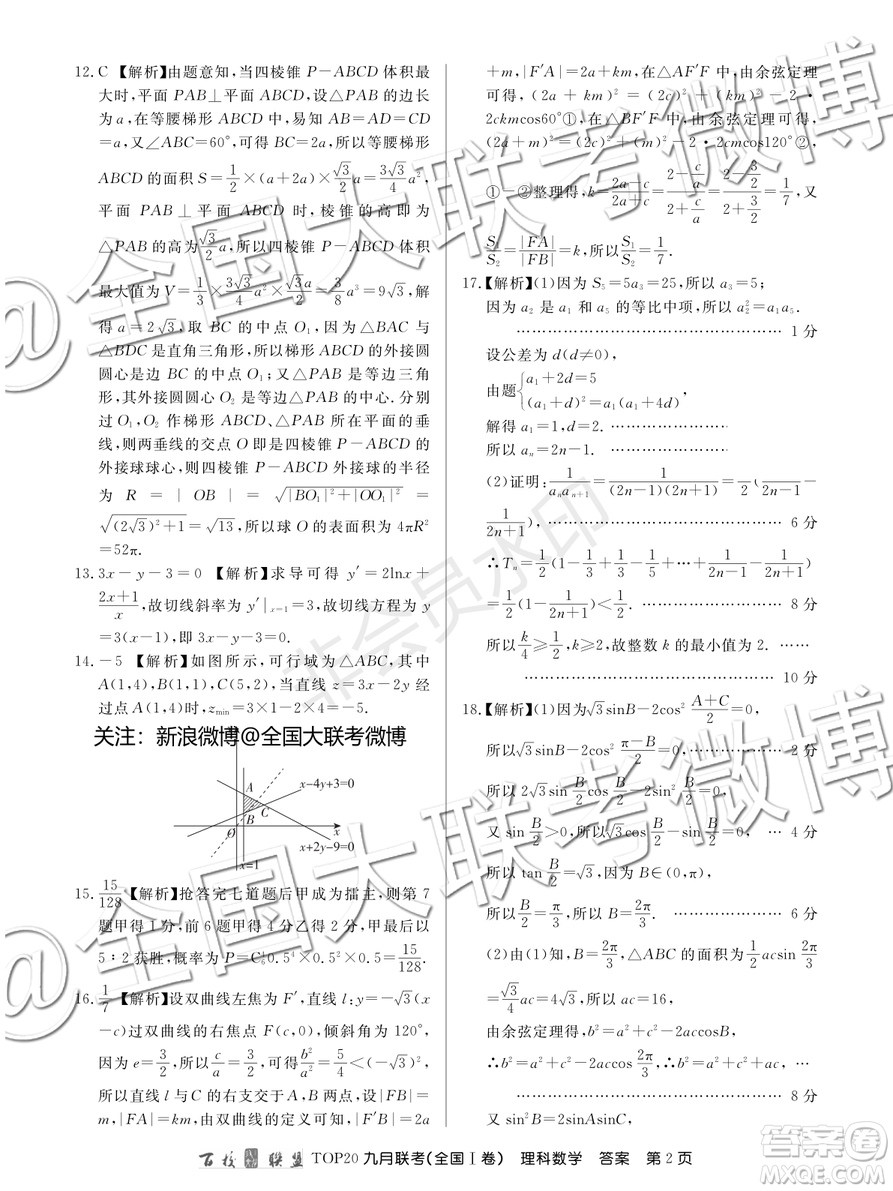 12. C 【解析】由题意知，当四棱锥 P－ABCD 体积最
大时，平面 PAB⊥平面 ABCD，设△PAB 的边长
为 a，在等腰梯形 ABCD 中，易知 AB=AD=CD
=a，又∠ABC=60°，可得 BC=2a，所以等腰梯形
ABCD 的面积 S=1/2×(a+2a)×√3/2 a=3√3/4 a²，
平面 PAB⊥平面 ABCD 时，棱锥的高即为
△PAB 的高为√3/2 a，所以四棱锥 P－ABCD 体积
最大值为 V=1/3×3√3/4 a²×√3a/2=3/8 a³=9√3，解
得 a=2√3，取 BC 的中点 O₁，因为△BAC 与
△BDC 是直角三角形，所以梯形 ABCD 的外接圆
圆心是边 BC 的中点 O₁；又△PAB 是等边三角
形，其外接圆圆心 O₂ 是等边△PAB 的中心. 分别
过 O₁,O₂ 作梯形 ABCD、△PAB 所在平面的垂
线，则两垂线的交点 O 即是四棱锥 P－ABCD 的
外接球球心，所以四棱锥 P－ABCD 外接球的半径
为 R = |OB| = √(|BO₁|²+|OO₁|²) =
√((2√3)²+1)=√13，所以球 O 的表面积为 4πR²
=52π.
13. 3x－y－3=0 【解析】求导可得 y′=2lnx+
(2x+1)/x，故切线斜率为 y′|x=1=3，故切线方程为 y
=3(x－1)，即 3x－y－3=0.
14. －5 【解析】如图所示，可行域为△ABC，其中
A(1,4)，B(1,1)，C(5,2)，当直线 z=3x－2y 经
过点 A(1,4)时，zmin=3×1－2×4=－5.
关注：新浪微博@全国大联考微博
A
x－4y+3=0
B
C
O
x
x+2y－9=0
x=1
15. 15/128 【解析】抢答完七道题后甲成为擂主，则第 7
题甲得 1 分，前 6 题甲得 4 分乙得 2 分，甲最后以
5：2 获胜，概率为 P=C₆⁴0.5⁴×0.5²×0.5=15/128.
16. 1/7 【解析】设双曲线左焦为 F′，直线 l：y=－√3(x
－c)过双曲线的右焦点 F(c,0)，倾斜角为 120°，
因为 e=3/2，所以 c/a=3/2，可得 b²/a²=5/4<(－√3)²，
所以直线 l 与 C 的右支交于 A,B 两点，设|FB|=
m，|FA|=km，由双曲线的定义可知，|F′B|=2a
+m，|F′A|=2a+km，在△AF′F 中，由余弦定理
可得，(2a+km)²=(2c)²+(km)²－2·
2ckmcos60°①，在△BF′F 中，由余弦定理可得，
(2a+m)²=(2c)²+(m)²－2·2cmcos120°②，
①－②整理得，k=(2a－c)/(2a+c)=(2－c/a)/(2+c/a)=(2－3/2)/(2+3/2)=1/7，又
S₁/S₂=|FA|/|FB|=k，所以S₁/S₂=1/7.
17.【解析】(1)因为 S₅=5a₃=25，所以 a₃=5；
因为 a₂ 是 a₁ 和 a₅ 的等比中项，所以 a₂²=a₁a₅.
………………………………… 1 分
设公差为 d(d≠0)，
由题{a₁+2d=5
(a₁+d)²=a₁(a₁+4d)，
解得 a₁=1，d=2. ………………
所以 aₙ=2n－1. ………………
(2)证明：1/(aₙaₙ₊₁)=1/((2n－1)(2n+1))=1/2(1/(2n－1)－
1/(2n+1))，………………………… 6 分
∴Tₙ=1/2(1－1/3+1/3－1/5+…+1/(2n－1)－1/(2n+1))=
1/2(1－1/(2n+1))<1/2. ………………… 8 分
所以 k/4≥1/2，k≥2，故整数 k 的最小值为 2. ……
………………………………… 10 分
18.【解析】(1)因为√3sinB－2cos² (A+C)/2=0，
所以√3sinB－2cos² (π－B)/2=0，………… 2 分
所以 2√3sin B/2 cos B/2－2sin² B/2=0，
又 sin B/2>0，所以√3cos B/2－sin B/2=0，… 4 分
所以 tan B/2=√3，因为 B∈(0,π)，
所以 B/2=π/3，所以 B=2π/3. ……………… 6 分
(2)由(1)知，B=2π/3，△ABC 的面积为1/2 acsin 2π/3
=√3/4 ac=4√3，所以 ac=16，
由余弦定理得，b²=a²+c²－2accosB，
∴b²=a²+c²－2accos 2π/3，所以 b²=a²+c²+ac，
………………………………… 8 分
又 sin²B=2sinAsinC，
百校联盟 TOP20 九月联考(全国Ⅰ卷) 理科数学 答案 第 2 页
@全国大联考微博
@全国大联考微博
非会员水印
答案圈
MXQE.COM